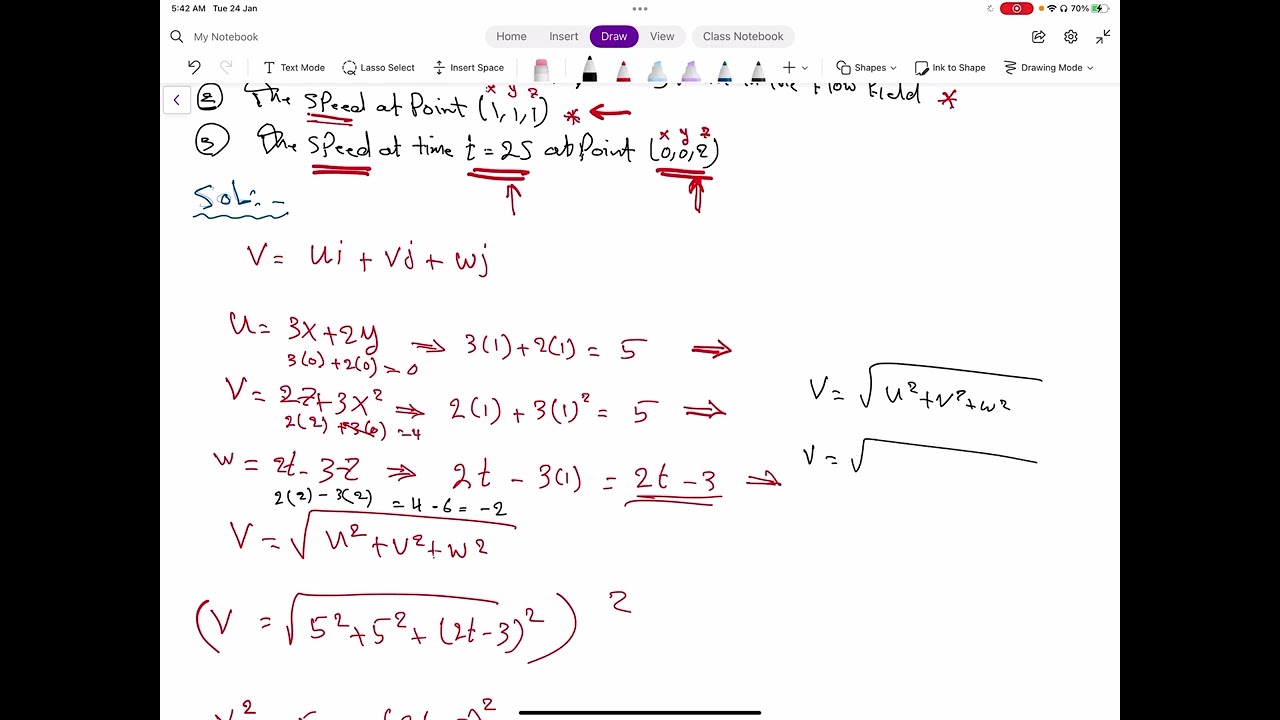 5:42 AM Tue 24 Jan
70%
My Notebook
Home Insert Draw View Class Notebook
Text Mode Lasso Select Insert Space Shapes Ink to Shape Drawing Mode
② The speed at Point (1,1,1) * ← Flow Field *
x y z
③ The speed at time t = 2S at Point (0,0,2)
x y z
Sol:-
V = ui + Vj + wj
u = 3x+2y ⇒ 3(1)+2(1) = 5 ⇒
3(0)+2(0) = 0
V = 2z+3x² ⇒ 2(1)+3(1)² = 5 ⇒
2(2)+3(0) = 4
w = 2t-3z ⇒ 2t - 3(1) = 2t-3 ⇒
2(2)-3(2) = 4-6 = -2
V = √u²+v²+w²
(V = √5²+5²+(2t-3)²) 2
V = √u²+v²+w²
V = √